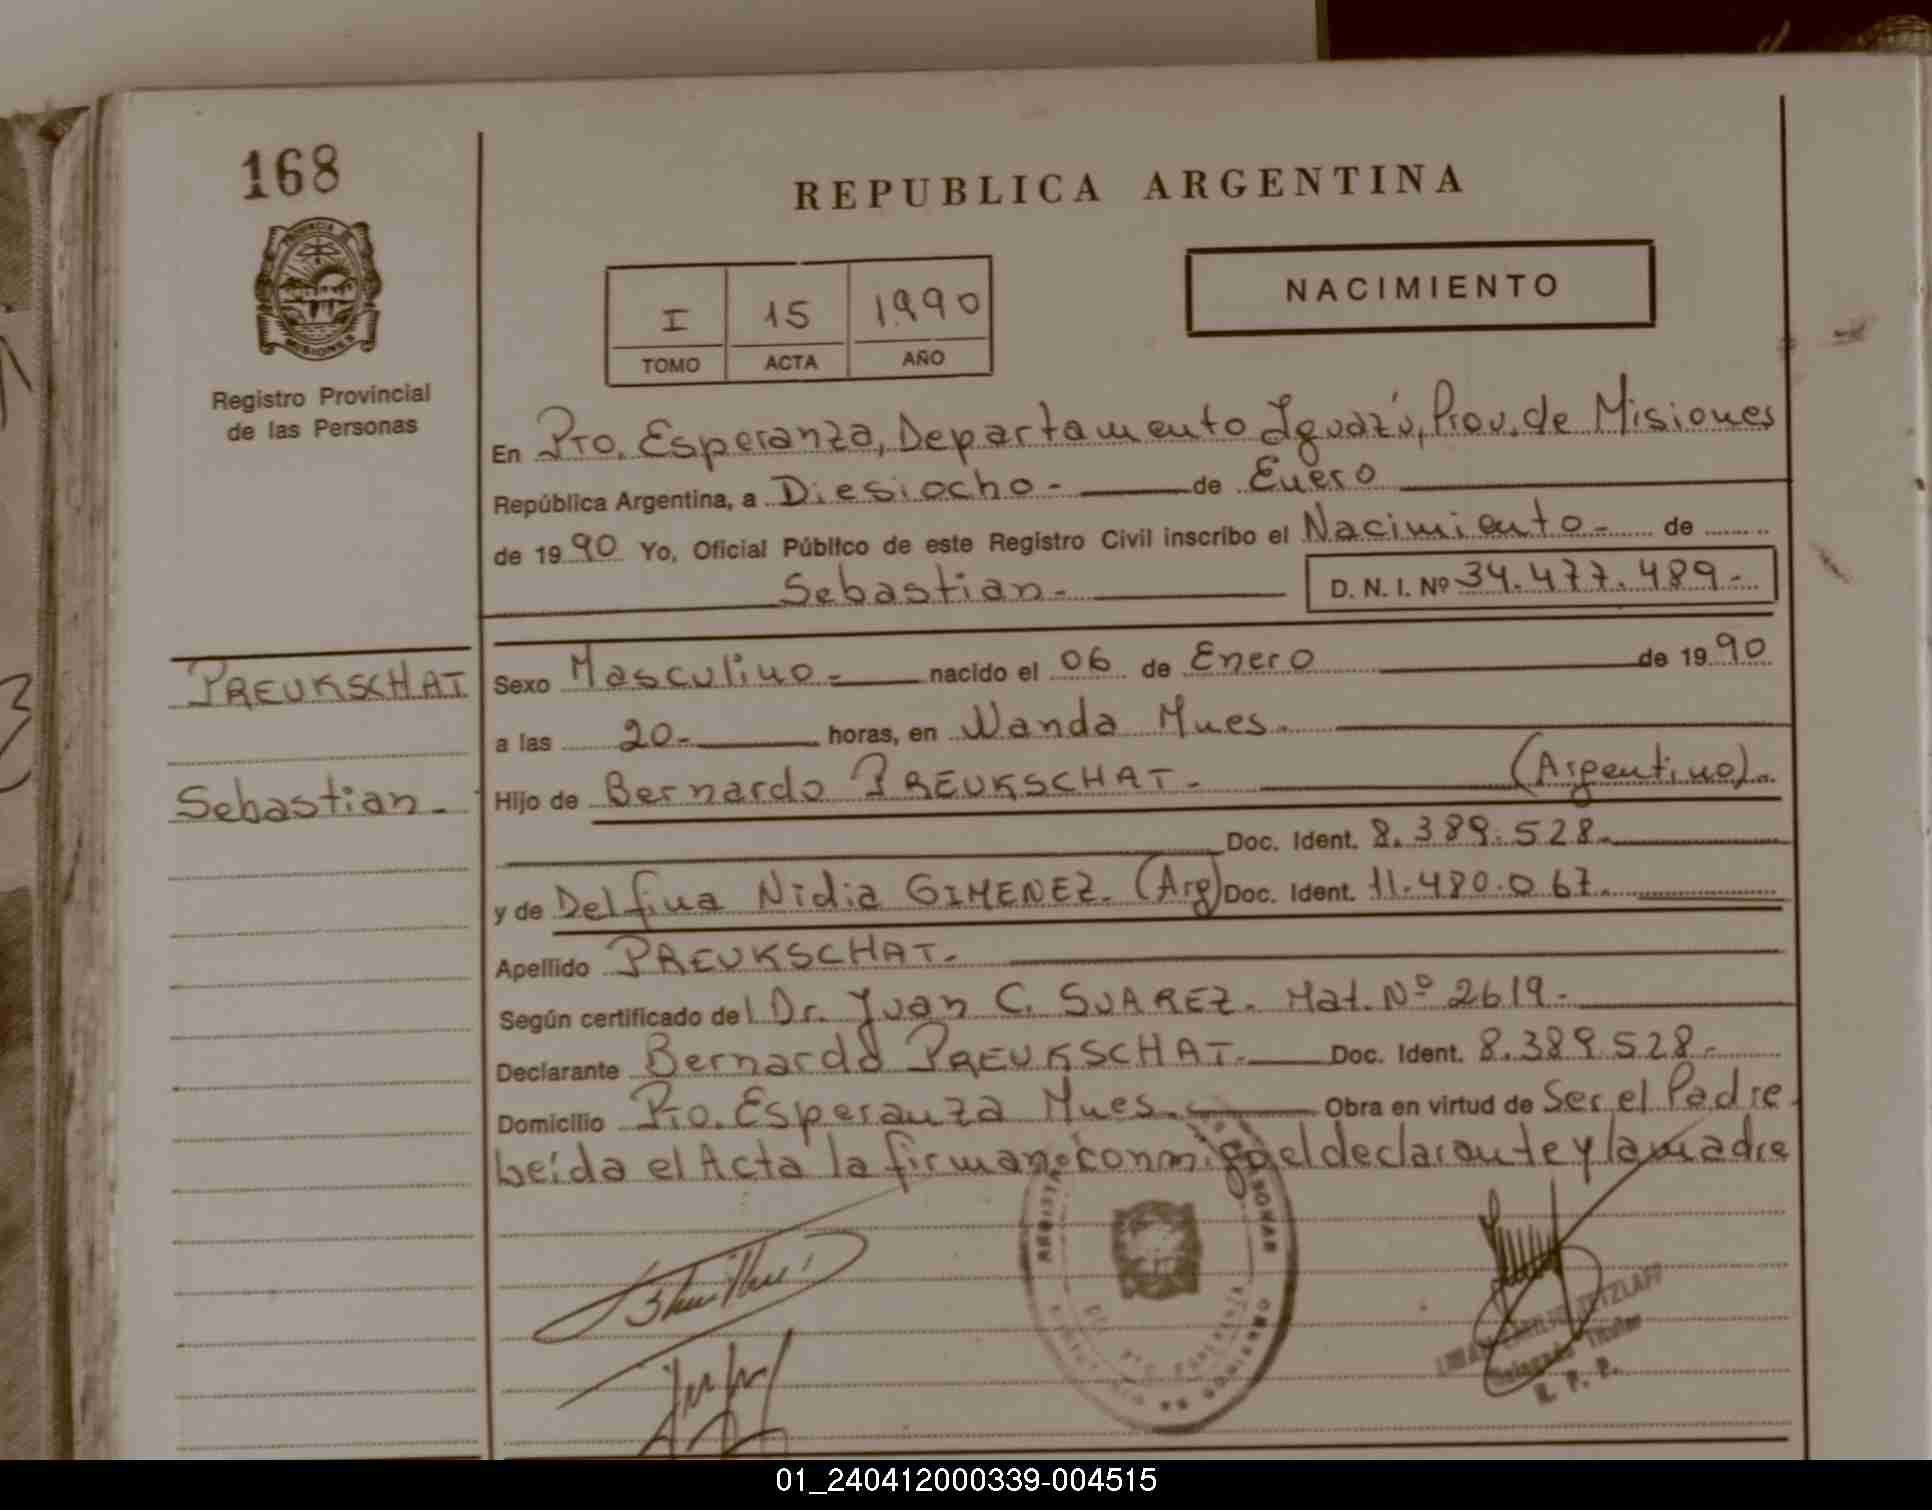 168
REPUBLICA ARGENTINA
PROVINCIA DE
MISIONES
Registro Provincial
de las Personas
I 15 1990
TOMO ACTA AÑO
NACIMIENTO
En Pto. Esperanza, Departamento Iguazú, Prov. de Misiones
República Argentina, a Diesiocho - de Enero
de 1990 Yo, Oficial Público de este Registro Civil inscribo el Nacimiento - de
Sebastian - D. N. I. Nº 34.477.489.-
PREUKSCHAT
Sexo Masculino - nacido el 06 de Enero de 1990
a las 20- horas, en Wanda Mnes.
Sebastian -
Hijo de Bernardo PREUKSCHAT - (Argentino).
Doc. Ident. 8.389.528-
y de Delfina Nidia GIMENEZ. (Arg) Doc. Ident. 11.480.067.
Apellido PREUKSCHAT.-
Según certificado del Dr. Juan C. SUAREZ. Mat. Nº 2619-
Declarante Bernardo PREUKSCHAT. Doc. Ident. 8.389.528-
Domicilio Pto. Esperanza Mnes. Obra en virtud de Ser el Padre.
Leída el Acta la firman conmigo el declarante y la madre
TETZLAFF
Delegado Titular
R. P. P.
01_240412000339-004515